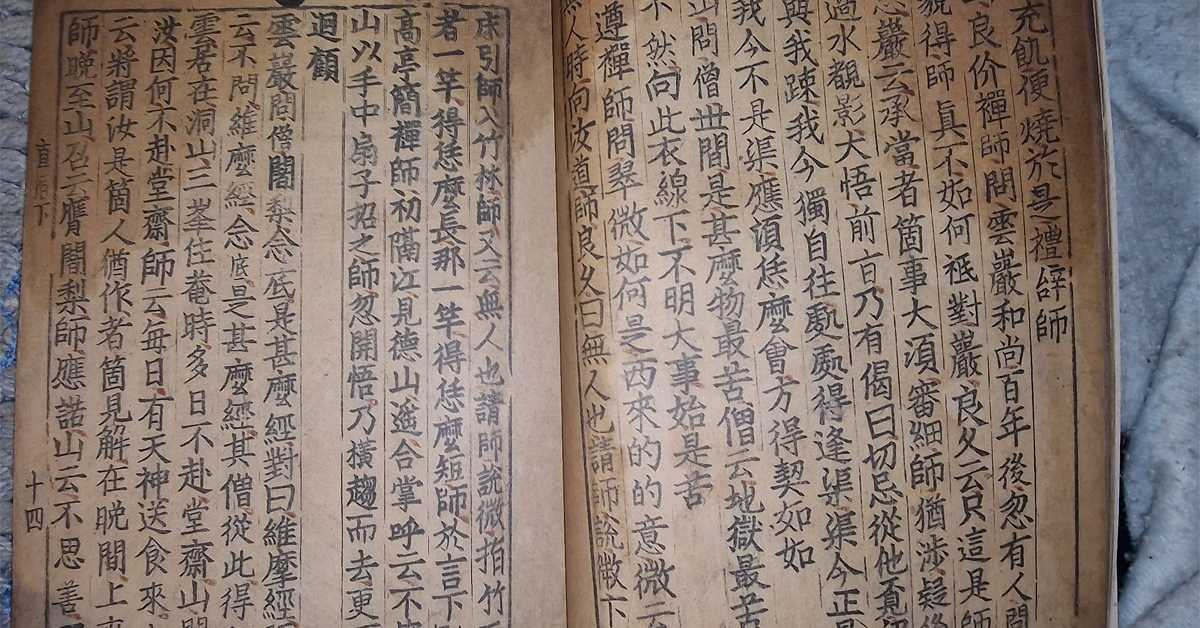 充飢便燒於是禮辝師
良价禪師問雲巖和尚百年後忽有人問
貌得師真不如何祗對巖良久云只這是師
巖云承當者箇事大湏審細師猶涉疑後
過水覩影大悟前㫖乃有偈曰切忌從他覔
與我踈我今獨自往處處得逢渠渠今正是
我今不是渠應湏恁麽會方得契如如
山問僧世間是甚麽物最苦僧云地獄最苦
不然向此衣線下不明大事始是苦
遵禪師問翠微如何是西來的的意微云
無人時向汝道師良久曰無人也請師説微下
床引師入竹林師又云無人也請師説微拍竹
者一竿得恁麽長那一竿得恁麽短師於言下
高亭簡禪師初隔江見德山遙合掌呼云不
山以手中扇子招之師忽開悟乃橫趨而去更
迴顧
雲巖問僧闍梨念底是甚麽經對曰維摩經
云不問維麽經念底是甚麽經其僧從此得
雲居在洞山三峯住菴時多日不赴堂齋山問
汝因何不赴堂齋師云每日有天神送食來
云將謂汝是箇人猶作者箇見解在晩間上來
師晩至山召云膺闍梨師應諾山云不思善
直指下
十四